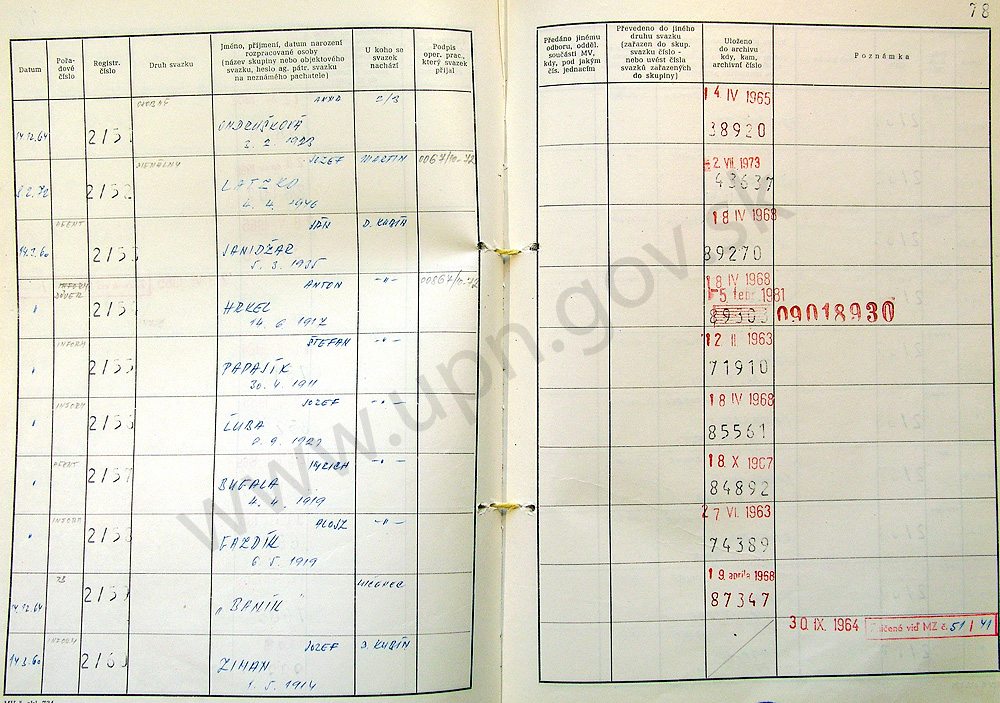 78
Datum
Pořa-
dové
číslo
Registr.
číslo
Druh svazku
Jméno, příjmení, datum narození
rozpracované osoby
(název skupiny nebo objektového
svazku, heslo ag. pátr. svazku
na neznámého pachatele)
U koho se
svazek
nachází
Podpis
oper. prac.,
který svazek
přijal
Předáno jinému
odboru, odděl.
součásti MV,
kdy, pod jakým
čís. jednacím
Převedeno do jiného
druhu svazku
(zařazen do skup.
svazku číslo -
nebo uvést čísla
svazků zařazených
do skupiny)
Uloženo
do archivu
kdy, kam,
archivní číslo
Poznámka
14.12.64
ONDRUŠKOVÁ
14 IV 1965
38920
JOZEF MARTIN
LATZKO
4. 4. 1946
2. VII. 1973
43637
AGENT JÁN D. KUBÍN
14.3.60
JANIDŽAR
5. 3. 1935
18 IV 1968
89270
ANTON - " -
" HRKEL
14. 6. 1917
18 IV 1968
5. febr. 1981
89303 09018930
INFORM ŠTEFAN - " -
" PAPAJÍK
30. 4. 1911
12 II 1963
71910
INFORM JOZEF - " -
" ĽUBA
18 IV 1968
85561
AGENT - " -
" BUGALA
4. 4. 1919
18. X 1967
84892
INFORM ALOJZ - " -
" GAZDÍK
6. 5. 1919
27 VI. 1963
74389
14.12.64
"BANÍK"
19. apríla 1968
87347
INFORM JOZEF D. KUBÍN
14.3.60
ZIMAN
1. 5. 1914
30. IX. 1964 viď MZ č. 51 / 41
www.upn.gov.sk